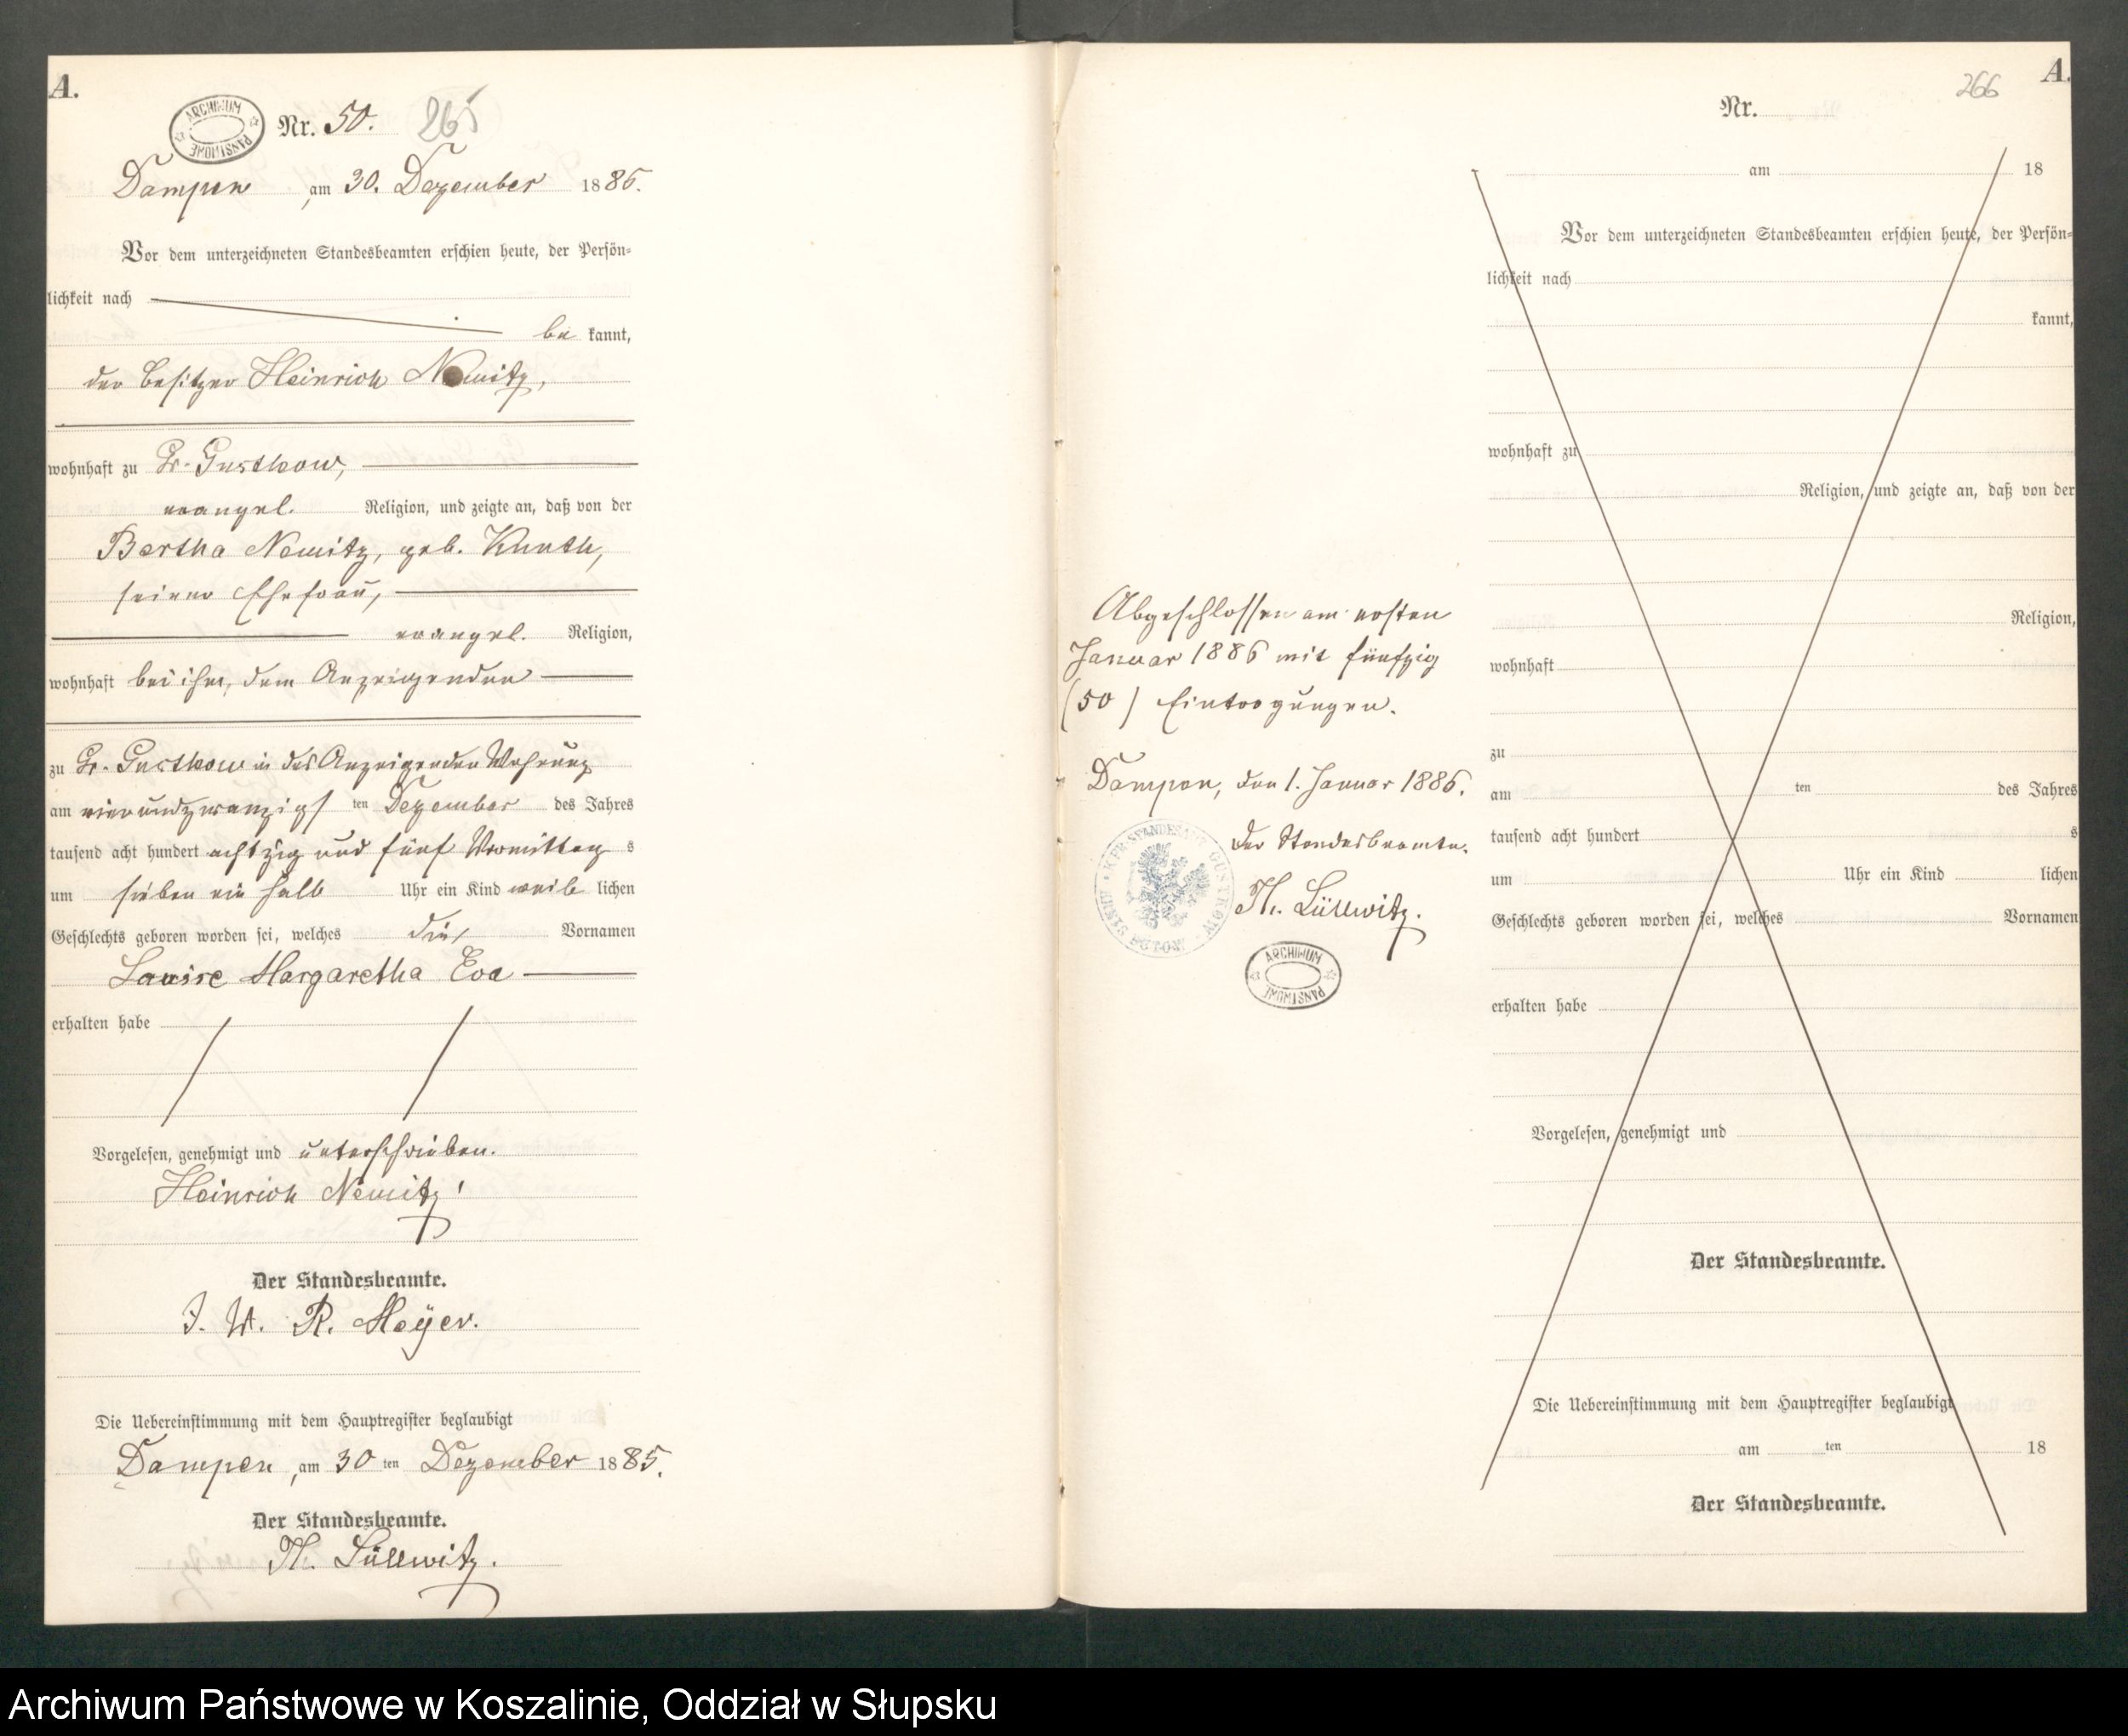 A.
ARCHIWUM PAŃSTWOWE
Nr. 50. 265
Dampen, am 30. Dezember 1885.
Vor dem unterzeichneten Standesbeamten erschien heute, der Persön=
lichkeit nach
be kannt,
der Besitzer Heinrich Nemitz,
wohnhaft zu Gr. Gustkow,
evangel. Religion, und zeigte an, daß von der
Bertha Nemitz, geb. Kunth,
seiner Ehefrau,
evangel. Religion,
wohnhaft bei ihm, dem Anzeigenden
zu Gr. Gustkow in des Anzeigenden Wohnung
am vierundzwanzigsten Dezember des Jahres
tausend acht hundert achtzig und fünf Vormittags
um sieben ein halb Uhr ein Kind weiblichen
Geschlechts geboren worden sei, welches die Vornamen
Louise Margaretha Eva
erhalten habe
Vorgelesen, genehmigt und unterschrieben.
Heinrich Nemitz
Der Standesbeamte.
J. V. R. Meÿer.
Die Uebereinstimmung mit dem Hauptregister beglaubigt
Dampen, am 30 ten Dezember 1885.
Der Standesbeamte.
Th. Lüllwitz.
Abgeschlossen am ersten
Januar 1886 mit fünfzig
(50) Eintragungen.
Dampen, den 1. Januar 1886.
Der Standesbeamte.
Th. Lüllwitz.
ARCHIWUM PAŃSTWOWE
266 A.
Nr.
am 18
Vor dem unterzeichneten Standesbeamten erschien heute, der Persön=
lichkeit nach
kannt,
wohnhaft zu
Religion, und zeigte an, daß von der
Religion,
wohnhaft
zu
am ten des Jahres
tausend acht hundert s
um Uhr ein Kind lichen
Geschlechts geboren worden sei, welches Vornamen
erhalten habe
Vorgelesen, genehmigt und
Der Standesbeamte.
Die Uebereinstimmung mit dem Hauptregister beglaubigt
am ten 18
Der Standesbeamte.
Archiwum Państwowe w Koszalinie, Oddział w Słupsku